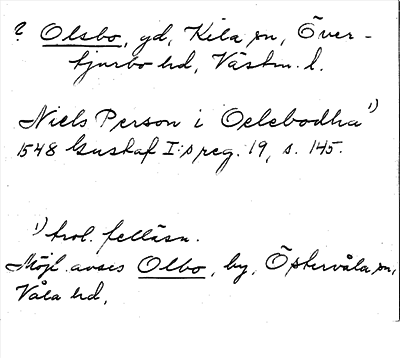 ? Olsbo, gd, Kila sn, Över-
tjurbo hd, Västm. l.
Niels Person i Oelebodha 1)
1548 Gustaf I:s reg. 19, s. 145.
1) trol. felläsn.
Möjl. avses Olbo, by, Östervåla sn,
Våla hd,